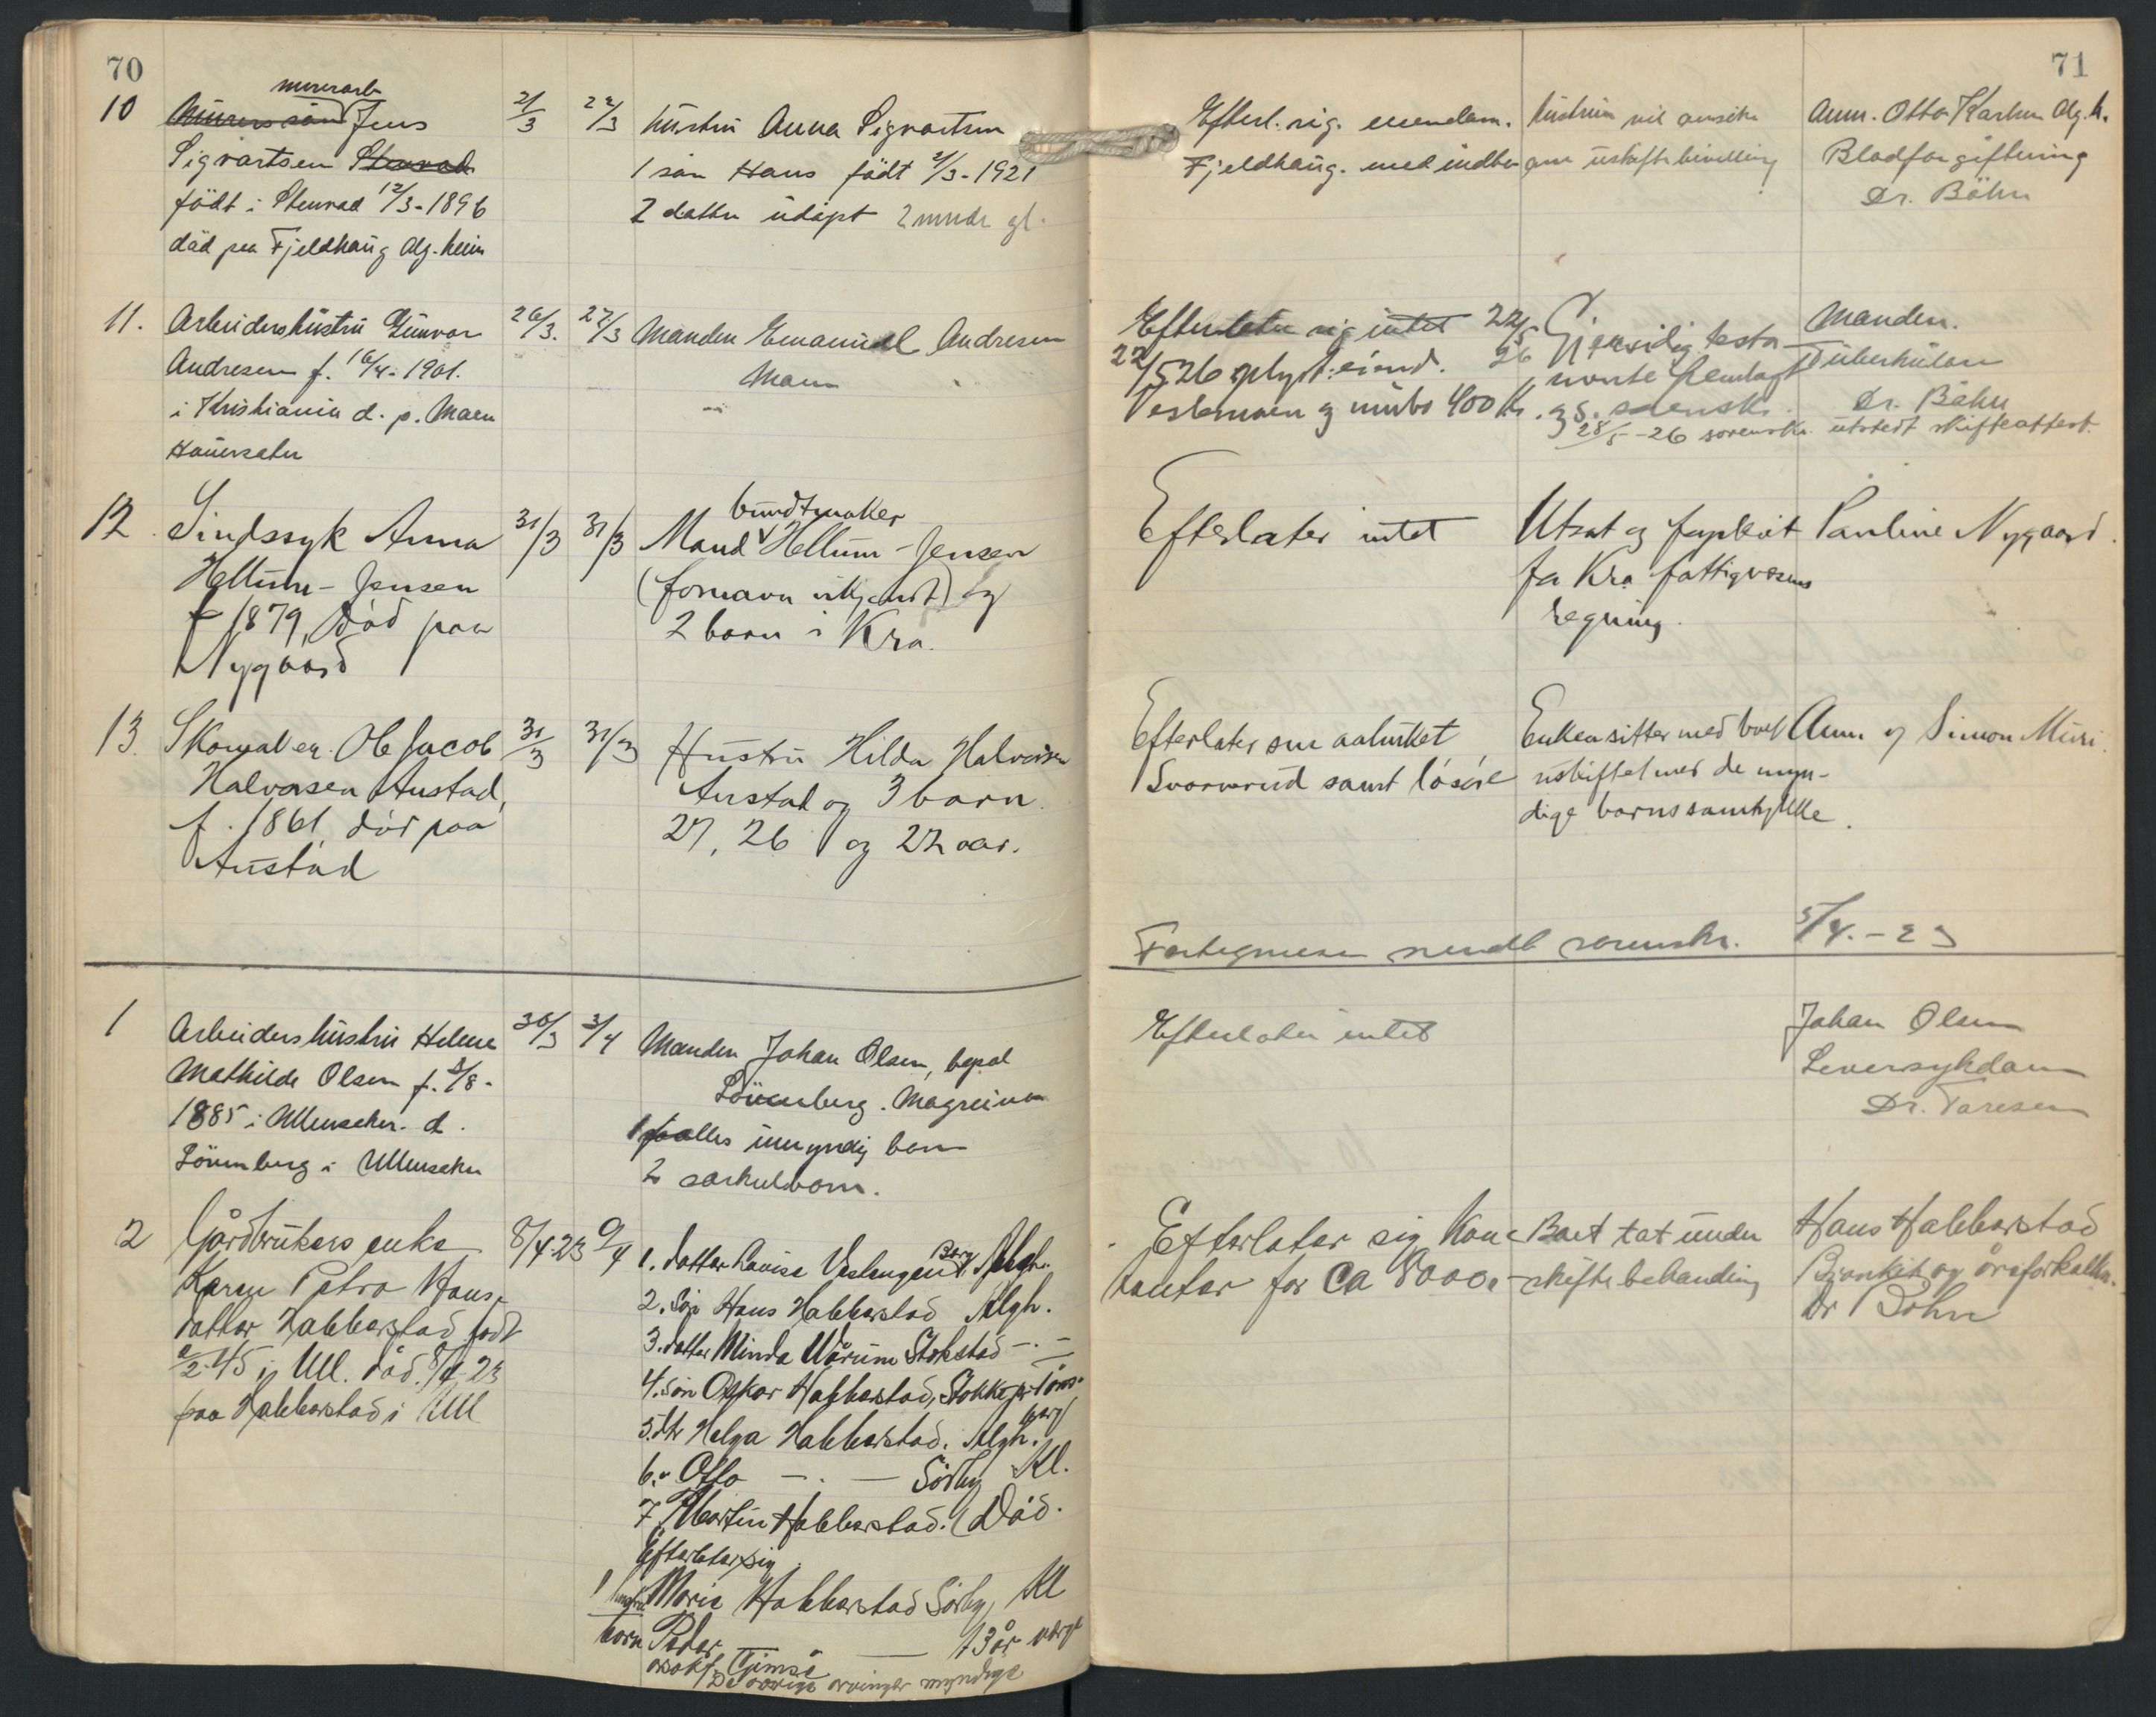 70
10
murerarb
Jens
Sigvartsen
født i Stenrad 12/3-1896
død paa Fjeldhaug Alg.heim
2/3
22/3
hustru Anna Sigvartsen
1 søn Hans født 2/3-1921
2 datter udøpt 2 mndr gl.
11.
Arbeidershustru Gunvor
Andresen f. 16/4-1901.
i Kristiania d. p. Moen
Hauerseter
26/3.
27/3
Manden Emanuel Andresen
Moen
12.
Sindssyk Anna
Hellum-Jensen
f 1879, død paa
Nygaard
31/3
31/3
bundtmaker
Mand Hellum-Jensen
(fornavn ukjendt) og
2 barn i Kra.
13.
Skomaker Ole Jacob
Halvorsen Austad,
f. 1861, død paa
Austad
31/3
31/3
Hustru Hilda Halvorsen
Austad og 3 barn.
27, 26 og 22 aar.
1
Arbeidershustru Helene
Mathilde Olsen f. 5/8-
1885 i Ullensaker. d.
Løvenberg i Ullensaker
30/3
3/4
Manden Johan Olsen,
Løvenberg. Mogreina
1 fælles umyndig barn
2 særkulbarn.
2
Gårdbrukers enke
Karen Petra Hans-
datter Habberstad født
2-45 i Ull. død. 8/4-23
paa Habberstad i Ull
8/4-23
9/4
1. datter Lovise Veslengen Berg Algh.
2. Søn Hans Habberstad Algh.
3. datter Minda Wårum Stokstad -.-
4. Søn Oskar Habberstad, Stokke pr Tøns-
berg
5. dtr Helga Habberstad. Algh.
6. " Otto -.- Sørby Kl.
7. Martin Habberstad. (Død.
Efterlater sig
Marie Habberstad Sørby, Kl
barn Peder 13 år
De øvrige arvinger myndige
71
Efterl. sig. eiendom.
Fjeldhaug. med indbo
hustruen vil ansøke
om uskiftebevilling
Anm. Otto Karlsen Alg.h.
Blodforgiftning
Dr. Böhn
Efterlater sig intet
22/5 26 oplyst: eiend.
Vestermoen og innbo 400 Kr.
22/5 26
Gjensidig testa-
mente fremlagt
og s. sorenskr.
28/5-26 sorenskr. utstedt skifteattest.
Manden.
Tuberkulose
Dr. Böhn
Efterlater intet
Utsat og forpleiet
for Kra. fattigvæsens
regning.
Pauline Nygaard.
Efterlater sne aaluset
Svarverud samt løsøre
Enken sitter med boet
uskiftet med de myn-
dige barns samtykke.
Anm og Simon Muri.
Fortegnelsen sendt sorenskr. 5/4.-23
Efterlater intet
Johan Olsen
Leversykdom
Dr. Faresen
Efterlater sig Kon-
tanter for Ca 8000.-
Boet tat under
skiftebehanding
Hans Habberstad
Bronkit og åreforkalkn.
Dr Böhn